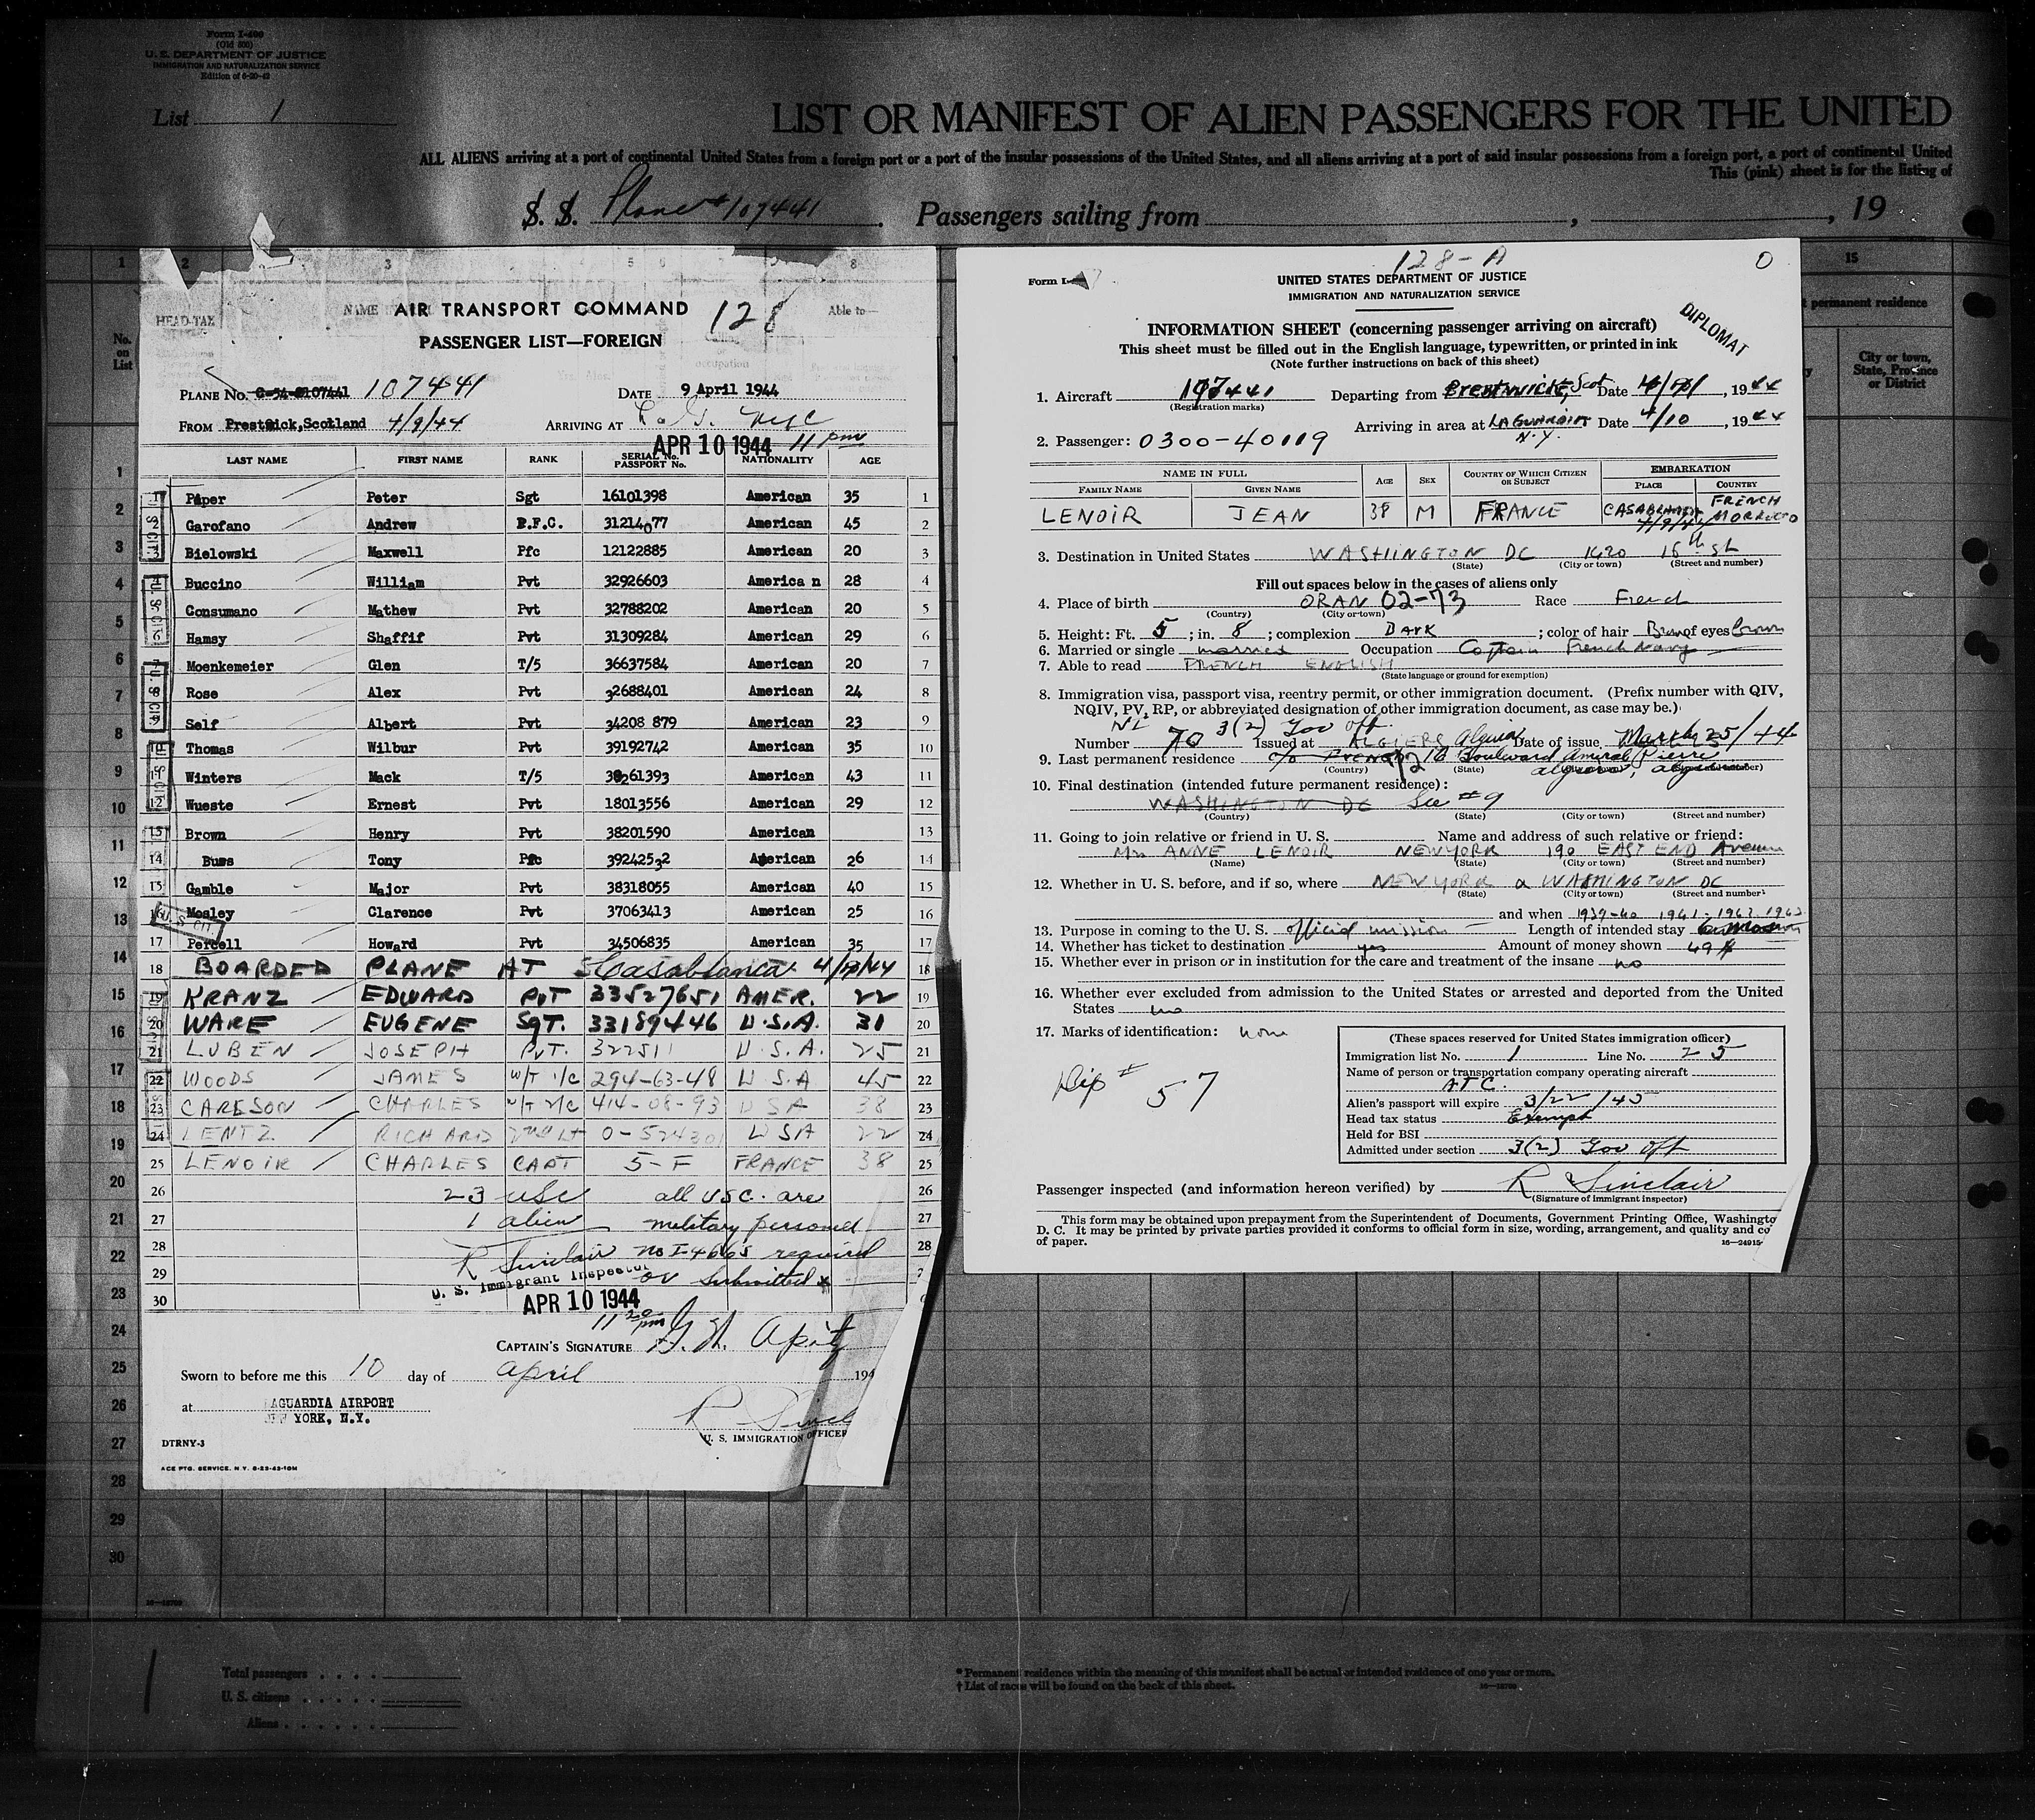 Form I-400
(Old 500)
U. S. DEPARTMENT OF JUSTICE
IMMIGRATION AND NATURALIZATION SERVICE
Edition of 6-20-42
List 1
LIST OR MANIFEST OF ALIEN PASSENGERS FOR THE UNITED
ALL ALIENS arriving at a port of continental United States from a foreign port or a port of the insular possessions of the United States, and all aliens arriving at a port of said insular possessions from a foreign port, a port of continental United
This (pink) sheet is for the listing of
S. S. Plane # 107441. Passengers sailing from , , 19
HEAD-TAX NAME Able to—
No. on List
AIR TRANSPORT COMMAND 128
PASSENGER LIST—FOREIGN
PLANE No. C-54-107441 107441 DATE 9 April 1944
FROM Prestwick, Scotland 4/9/44 ARRIVING AT L.G. NYC
APR 10 1944 11 pm
LAST NAME FIRST NAME RANK SERIAL No. PASSPORT No. NATIONALITY AGE
1 Piper Peter Sgt 16101398 American 35 1
2 Garofano Andrew P.F.C. 31214077 American 45 2
3 Bielowski Maxwell Pfc 12122885 American 20 3
4 Buccino William Pvt 32926603 America n 28 4
5 Consumano Mathew Pvt 32788202 American 20 5
6 Hamsy Shaffif Pvt 31309284 American 29 6
7 Moenkemeier Glen T/5 36637584 American 20 7
8 Rose Alex Pvt 32688401 American 24 8
9 Self Albert Pvt 34208 879 American 23 9
10 Thomas Wilbur Pvt 39192742 American 35 10
11 Winters Mack T/5 38261393 American 43 11
12 Wueste Ernest Pvt 18013556 American 29 12
13 Brown Henry Pvt 38201590 American 13
14 Buws Tony Pfc 39242532 American 26 14
15 Gamble Major Pvt 38318055 American 40 15
16 Mosley Clarence Pvt 37063413 American 25 16
17 Percell Howard Pvt 34506835 American 35 17
18 BOARDED PLANE AT Casablanca 4/9/44 18
19 KRANZ EDWARD PVT 33527651 AMER. 22 19
20 WARE EUGENE SGT. 33189446 U.S.A. 31 20
21 LUBEN JOSEPH PVT. 322511 U.S.A. 25 21
22 WOODS JAMES W/T 1/C 294-63-48 U S.A 45 22
23 CARLSON CHARLES W/T 2/C 414-08-93 U S A 38 23
24 LENTZ RICHARD 2nd Lt 0-524301 U S A 22 24
25 LENOIR CHARLES CAPT 5-F FRANCE 38 25
26 23 USC all USC. are 26
27 1 alien military personnel 27
28 R Sinclair no I-466's required 28
29 U. S. Immigrant Inspector or submitted *
30 APR 10 1944
11 20 pm
CAPTAIN'S SIGNATURE
Sworn to before me this 10 day of April 194
at LAGUARDIA AIRPORT
NEW YORK, N.Y.
R Sincl
U. S. IMMIGRATION OFFICER
DTRNY-3
ACE PTG. SERVICE, N.Y. 6-23-43-10M
128-A
0
Form I-
UNITED STATES DEPARTMENT OF JUSTICE
IMMIGRATION AND NATURALIZATION SERVICE
DIPLOMAT
INFORMATION SHEET (concerning passenger arriving on aircraft)
This sheet must be filled out in the English language, typewritten, or printed in ink
(Note further instructions on back of this sheet)
1. Aircraft 107441 Departing from Prestwick, Scot Date 4/9/, 1944
(Registration marks)
Arriving in area at LAGUARDIA N.Y. Date 4/10, 1944
2. Passenger: 0300-40119
NAME IN FULL AGE SEX COUNTRY OF WHICH CITIZEN OR SUBJECT EMBARKATION
FAMILY NAME GIVEN NAME PLACE COUNTRY
LENOIR JEAN 38 M FRANCE CASABLANCA 4/9/44 FRENCH MORROCCO
3. Destination in United States WASHINGTON DC 1620 16th St
(State) (City or town) (Street and number)
Fill out spaces below in the cases of aliens only
4. Place of birth ORAN 02-73 Race French
(Country) (City or town)
5. Height: Ft. 5; in. 8; complexion Dark; color of hair Brown of eyes Brown
6. Married or single married Occupation Captain French Navy
7. Able to read FRENCH ENGLISH
(State language or ground for exemption)
8. Immigration visa, passport visa, reentry permit, or other immigration document. (Prefix number with QIV,
NQIV, PV, RP, or abbreviated designation of other immigration document, as case may be.)
3(2) Gov off.
Number 70 Issued at ALGIERS Algeria Date of issue March 25/44
9. Last permanent residence c/o 10 Boulevard Amiral Pierre
(Country) (State) (City or town) (Street and number)
10. Final destination (intended future permanent residence):
WASHINGTON DC See #9
(Country) (State) (City or town) (Street and number)
11. Going to join relative or friend in U. S. Name and address of such relative or friend:
Mrs ANNE LENOIR NEWYORK 190 EAST END Avenue
(Name) (State) (City or town) (Street and number)
12. Whether in U. S. before, and if so, where NEW YORK & WASHINGTON DC
(State) (City or town) (Street and number)
and when 1939-40 1941-1943. 1943
13. Purpose in coming to the U. S. official mission Length of intended stay
14. Whether has ticket to destination yes Amount of money shown 49 $
15. Whether ever in prison or in institution for the care and treatment of the insane no
16. Whether ever excluded from admission to the United States or arrested and deported from the United
States no
17. Marks of identification: none
Dip # 57
(These spaces reserved for United States immigration officer)
Immigration list No. 1 Line No. 25
Name of person or transportation company operating aircraft
A T C.
Alien's passport will expire 3/22/45
Head tax status Exempt
Held for BSI
Admitted under section 3(2) Gov Off
Passenger inspected (and information hereon verified) by R Sinclair
(Signature of immigrant inspector)
This form may be obtained upon prepayment from the Superintendent of Documents, Government Printing Office, Washingto
D. C. It may be printed by private parties provided it conforms to official form in size, wording, arrangement, and quality and co
of paper.
16—24915
15
permanent residence
City or town, State, Province or District
Total passengers
U. S. citizens
Aliens
* Permanent residence within the meaning of this manifest shall be actual or intended residence of one year or more.
† List of races will be found on the back of this sheet.